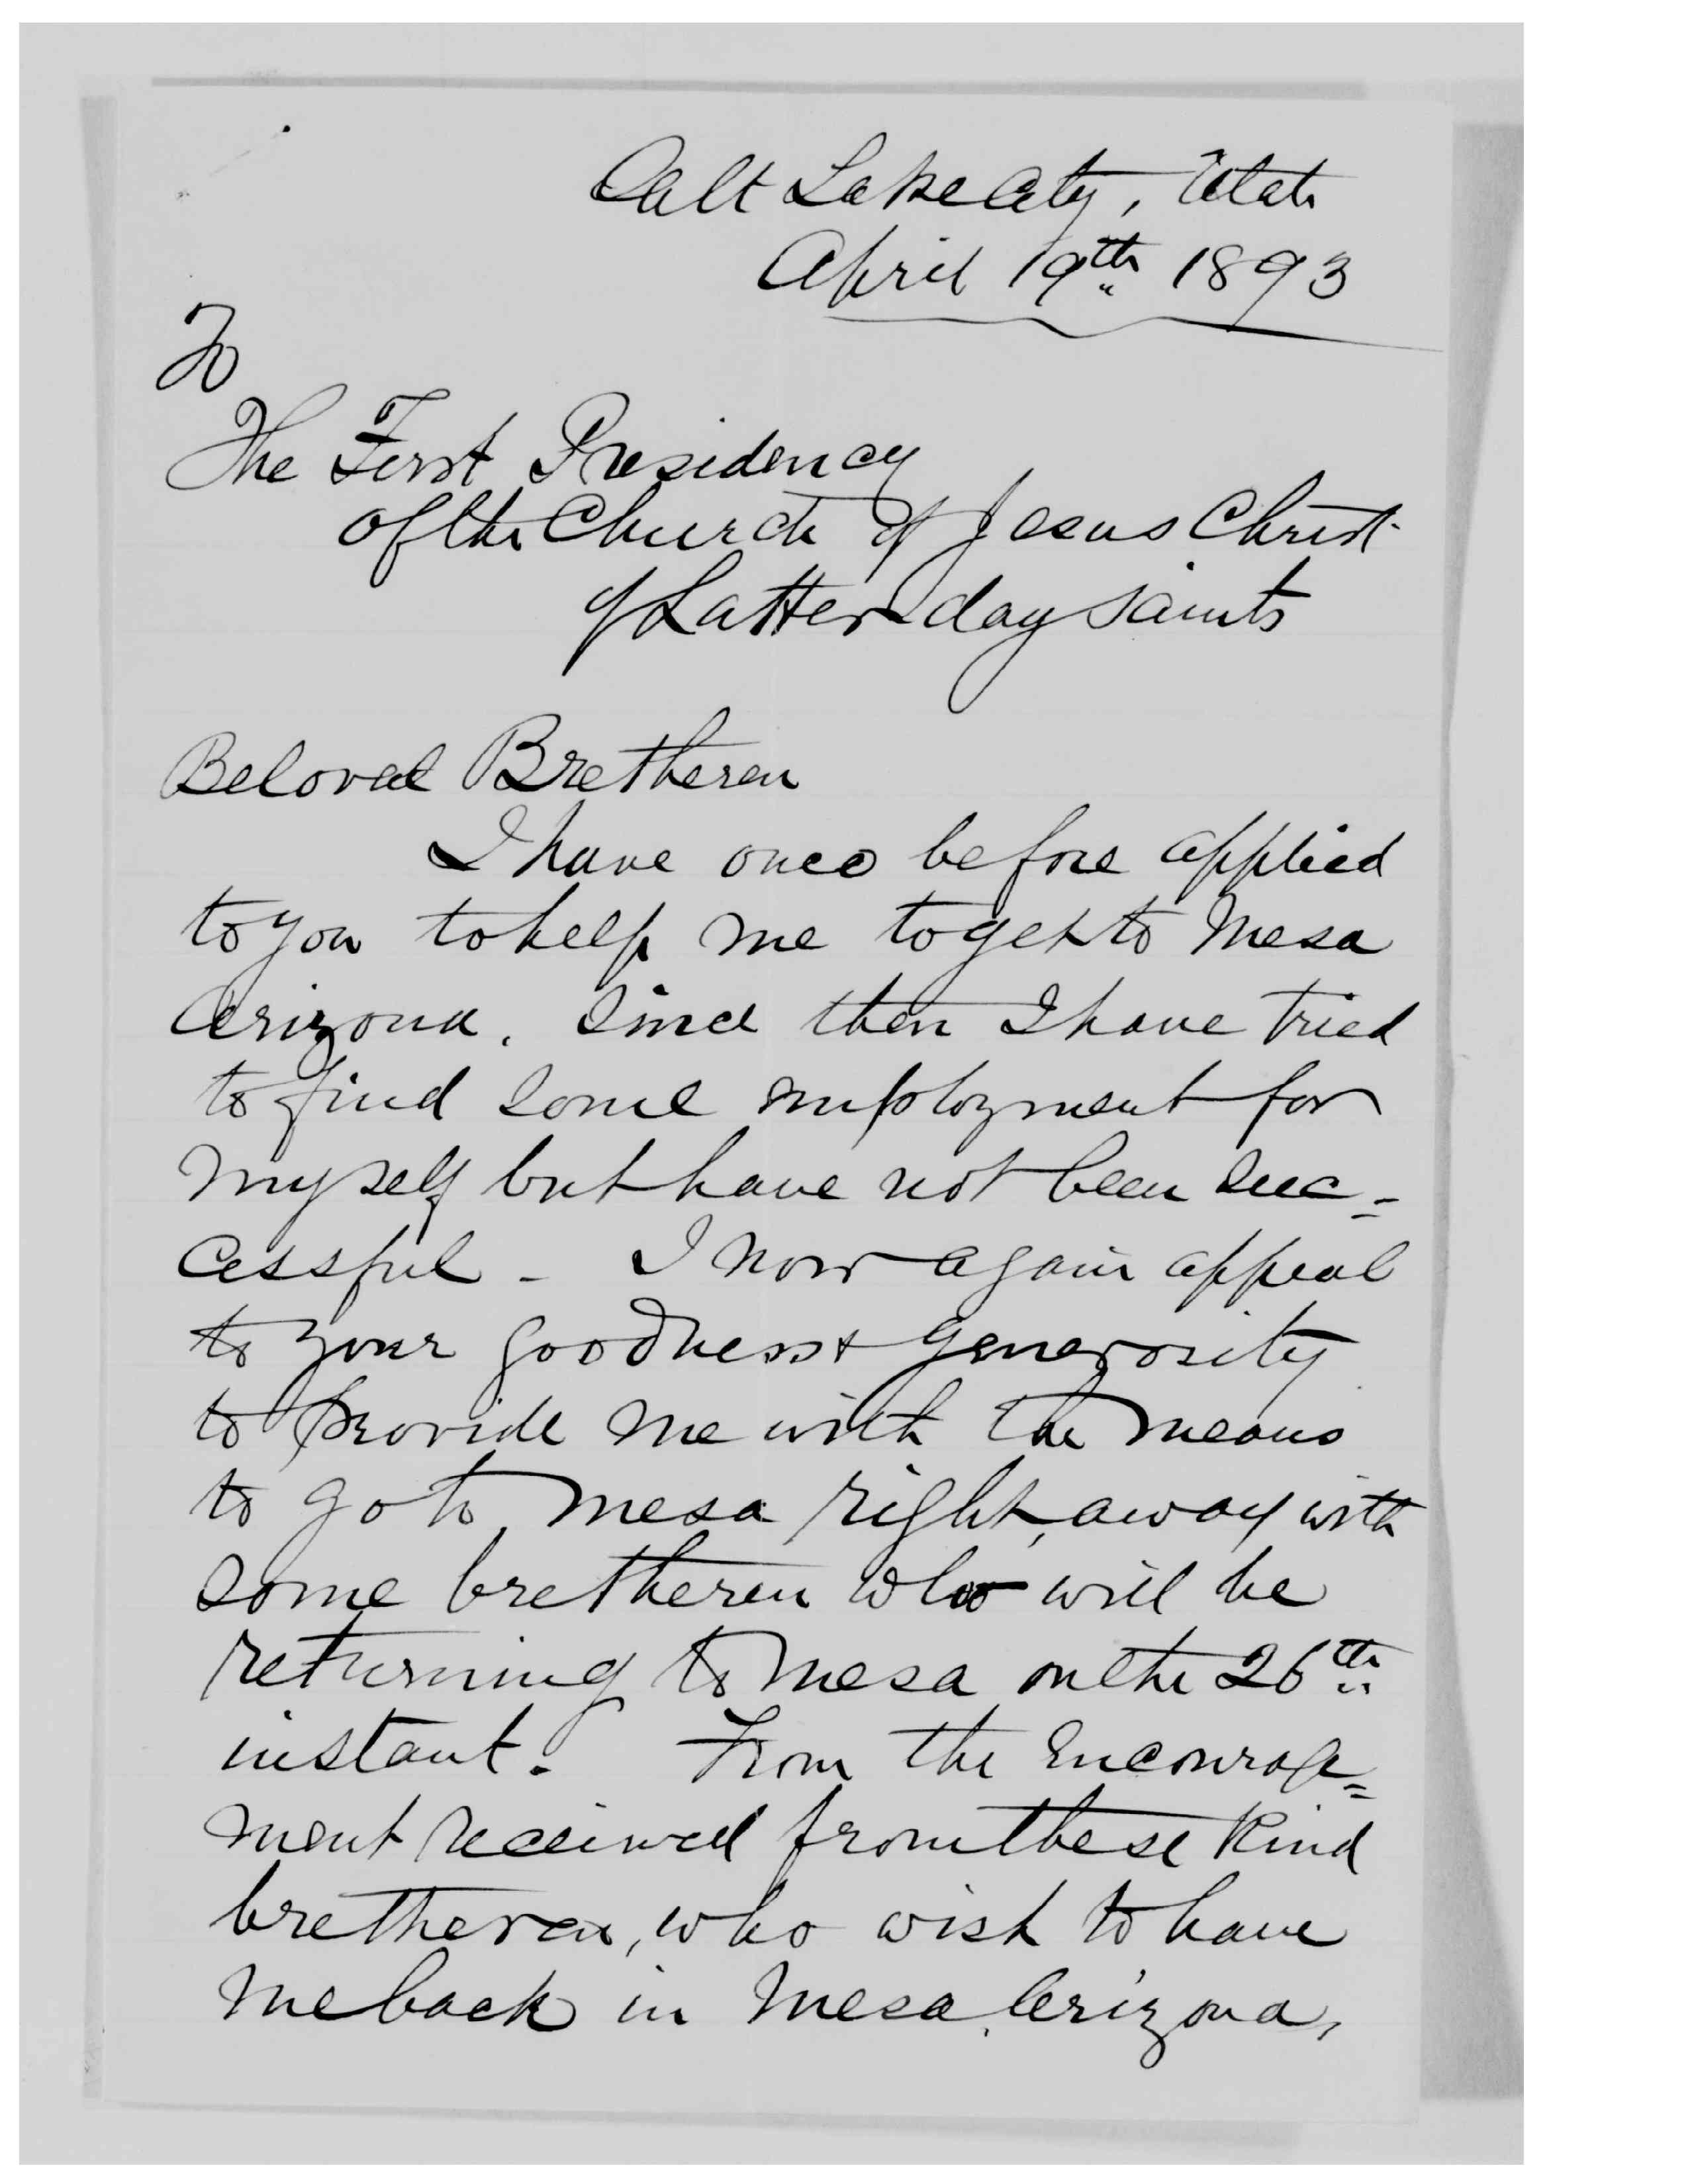 Salt Lake City, Utah
April 19th 1893
To
The First Presidency
of the Church of Jesus Christ
of Latter day Saints
Beloved Bretheren
I have once before applied
to you to help me to get to Mesa
Arizona. Since then I have tried
to find some employment for
myself but have not been suc-
cessful - I now again appeal
to your goodness & generosity
to provide me with the means
to go to Mesa right away with
some bretheren who will be
returning to Mesa on the 26th
instant. From the encourage=
ment received from these kind
bretheren, who wish to have
me back in Mesa, Arizona,